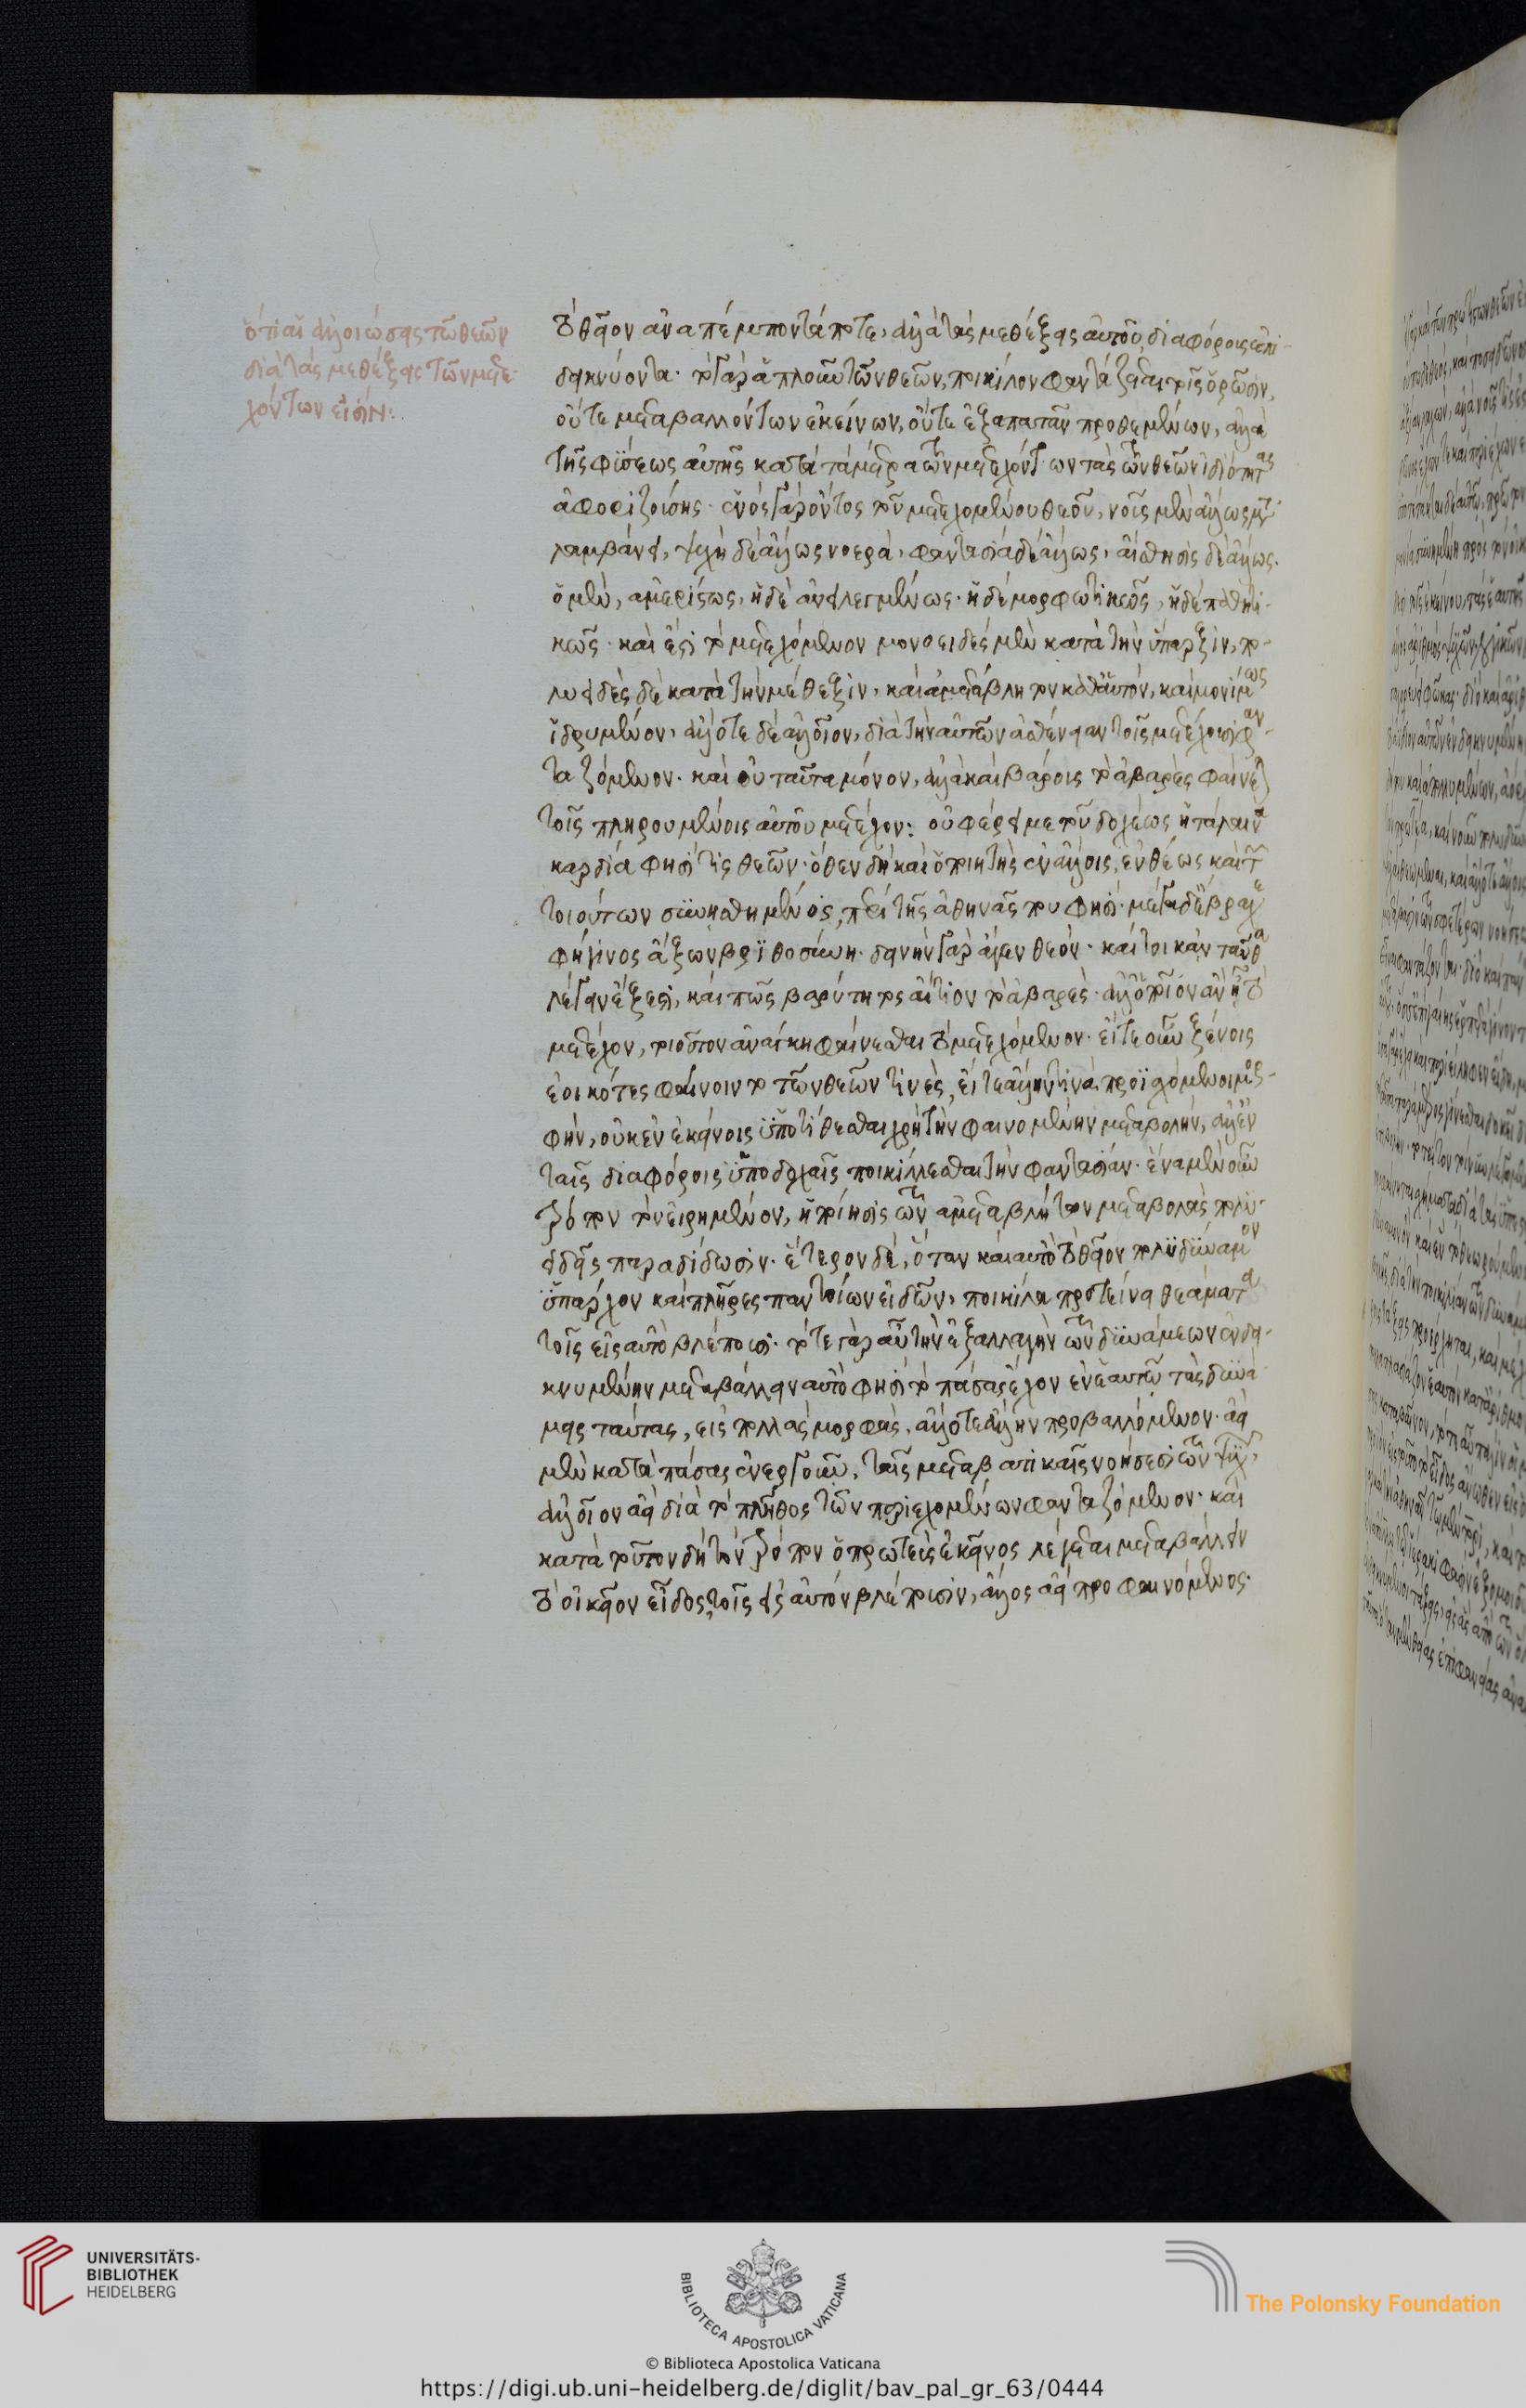 ὅτι αἱ ἀλλοιώσεις τῶν θεῶν
διὰ τὰς μεθέξεις τῶν μετε
χόντων εἰσίν:
τὸ θεῖον ἀναπέμποντά ποτε, ἀλλὰ τὰς μεθέξεις αὐτοῦ διαφόροις ἐπι-
δεικνύοντα. τὸ γὰρ ἁπλοῦν τῶν θεῶν, ποικίλον φαντάζεται τοῖς ὁρῶσιν,
οὔτε μεταβαλλόντων ἐκείνων, οὔτε ἐξαπατᾶν προθεμένων, ἀλλὰ
τῆς φύσεως αὐτῆς κατὰ τὰ μέτρα τῶν μετεχόντων τὰς τῶν θεῶν ἰδιότητας
ἀφοριζούσης. ἑνὸς γὰρ ὄντος τοῦ μετεχομένου θεοῦ, νοῦς μὲν ἄλλως μετα
λαμβάνει, ψυχὴ δὲ ἄλλως νοερὰ, φαντασία δὲ ἄλλως, αἴσθησις δὲ ἄλλως.
ὁ μὲν, ἀμερίστως, ἡ δὲ ἀνειλιγμένως. ἡ δὲ μορφωτικῶς, ἡ δὲ παθητι-
κῶς. καὶ ἔστι τὸ μετεχόμενον μονοειδὲς μὲν κατὰ τὴν ὕπαρξιν, πο-
λυειδὲς δὲ κατὰ τὴν μέθεξιν, καὶ ἀμετάβλητον καθ' αὑτόν, καὶ μονίμως
ἱδρυμένον, ἄλλοτε δὲ ἀλλοῖον, διὰ τὴν αὐτῶν ἀσθένειαν τοῖς μετέχουσι φαν-
ταζόμενον. καὶ οὐ ταῦτα μόνον, ἀλλὰ καὶ βάρους τὸ ἀβαρὲς φαίνεται
τοῖς πληρουμένοις αὐτοῦ μετέχον: οὐ φέρει με τοῦ δοχέως ἡ τάλαινα
καρδία φησί τις θεῶν. ὅθεν δὴ καὶ ὁ ποιητὴς ἐν ἄλλοις, ἐνθέως καὶ τῶν
τοιούτων συνῃσθημένος, περὶ τῆς ἀθηνᾶς που φησί. μέγα δ' ἔβραχε
φήγινος ἄξων βριθοσύνη. δεινὴν γὰρ ἄγεν θεόν. καίτοι κἀν ταῦθα
λέγειν ἔξεστι, καὶ πῶς βαρύτητος αἴτιον τὸ ἀβαρὲς. ἀλλ' ὁποῖον ἂν ᾖ τὸ
μετέχον, τοιοῦτον ἀνάγκη φαίνεσθαι τὸ μετεχόμενον. εἴτε οὖν ξένοις
ἐοικότες φαίνοιντο τῶν θεῶν τινὲς, εἴτε ἄλλην τινὰ προϊσχόμενοι μορ-
φὴν, οὐκ ἐν ἐκείνοις ὑποτίθεσθαι χρὴ τὴν φαινομένην μεταβολὴν, ἀλλ' ἐν
ταῖς διαφόροις ὑποδοχαῖς ποικίλλεσθαι τὴν φαντασίαν. ἕνα μὲν οὖν
τρόπον τὸν εἰρημένον, ἡ ποίησις τῶν ἀμεταβλήτων μεταβολὰς πολυ-
ειδεῖς παραδίδωσιν. ἕτερον δὲ, ὅταν καὶ αὐτὸ τὸ θεῖον πολυδύναμον
ὑπάρχον καὶ πλῆρες παντοίων εἰδῶν, ποικίλα προτείνῃ θεάματα
τοῖς εἰς αὐτὸ βλέπουσι. τότε γὰρ αὖ τὴν ἐξαλλαγὴν τῶν δυνάμεων ἐνδει-
κνυμένην μεταβάλλειν αὐτὸ φησὶ τὸ πάσας ἔχον ἐν ἑαυτῷ τὰς δυνά
μεις ταύτας, εἰς πολλὰς μορφὰς, ἄλλοτε ἄλλην προβαλλόμενον. ἀεὶ
μὲν κατὰ πάσας ἐνεργοῦν, ταῖς μεταβατικαῖς νοήσεσι τῶν ψυχῶν
ἀλλοῖον ἀεὶ διὰ τὸ πλῆθος τῶν περιεχομένων φανταζόμενον. καὶ
κατὰ τοῦτον δὴ τὸν τρόπον ὁ πρωτεὺς ἐκεῖνος λέγεται μεταβάλλειν
τὸ οἰκεῖον εἶδος, τοῖς εἰς αὐτὸν βλέπουσιν, ἄλλος ἀεὶ προφαινόμενος.
UNIVERSITÄTS-
BIBLIOTHEK
HEIDELBERG
BIBLIOTECA APOSTOLICA VATICANA
The Polonsky Foundation
© Biblioteca Apostolica Vaticana
https://digi.ub.uni-heidelberg.de/diglit/bav_pal_gr_63/0444